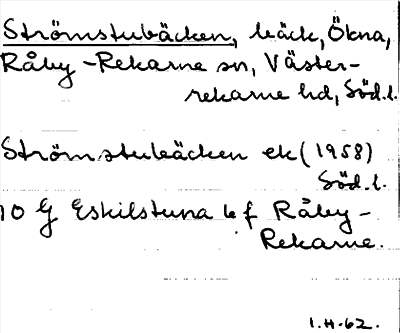 Strömstubäcken, bäck, Ökna,
Råby-Rekarne sn, Väster-
rekarne hd, Söd.l.
Strömstubäcken ek (1958)
Söd.l.
10 G Eskilstuna bf Råby-
Rekarne.
1.H-62.